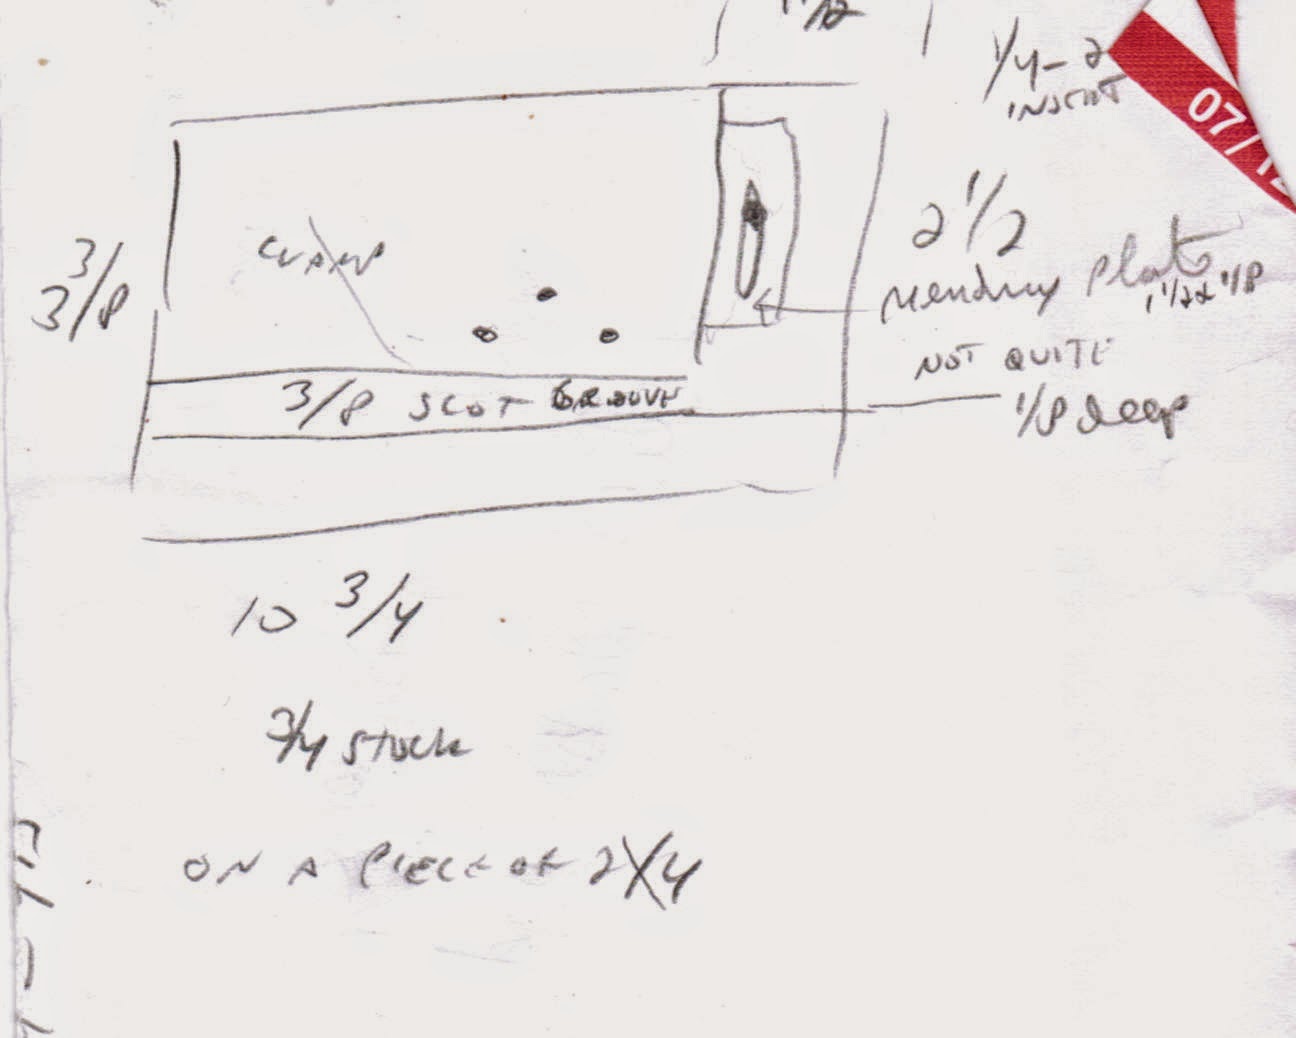 1/2
1/4-2
INSERT
07/12
CLAMP
2 1/2
Mending Plate
1 1/2 x 1/8
3 3/8
NOT QUITE
1/8 deep
3/8 SLOT GROOVE
10 3/4
3/4 Stock
ON A PIECE OF 2X4